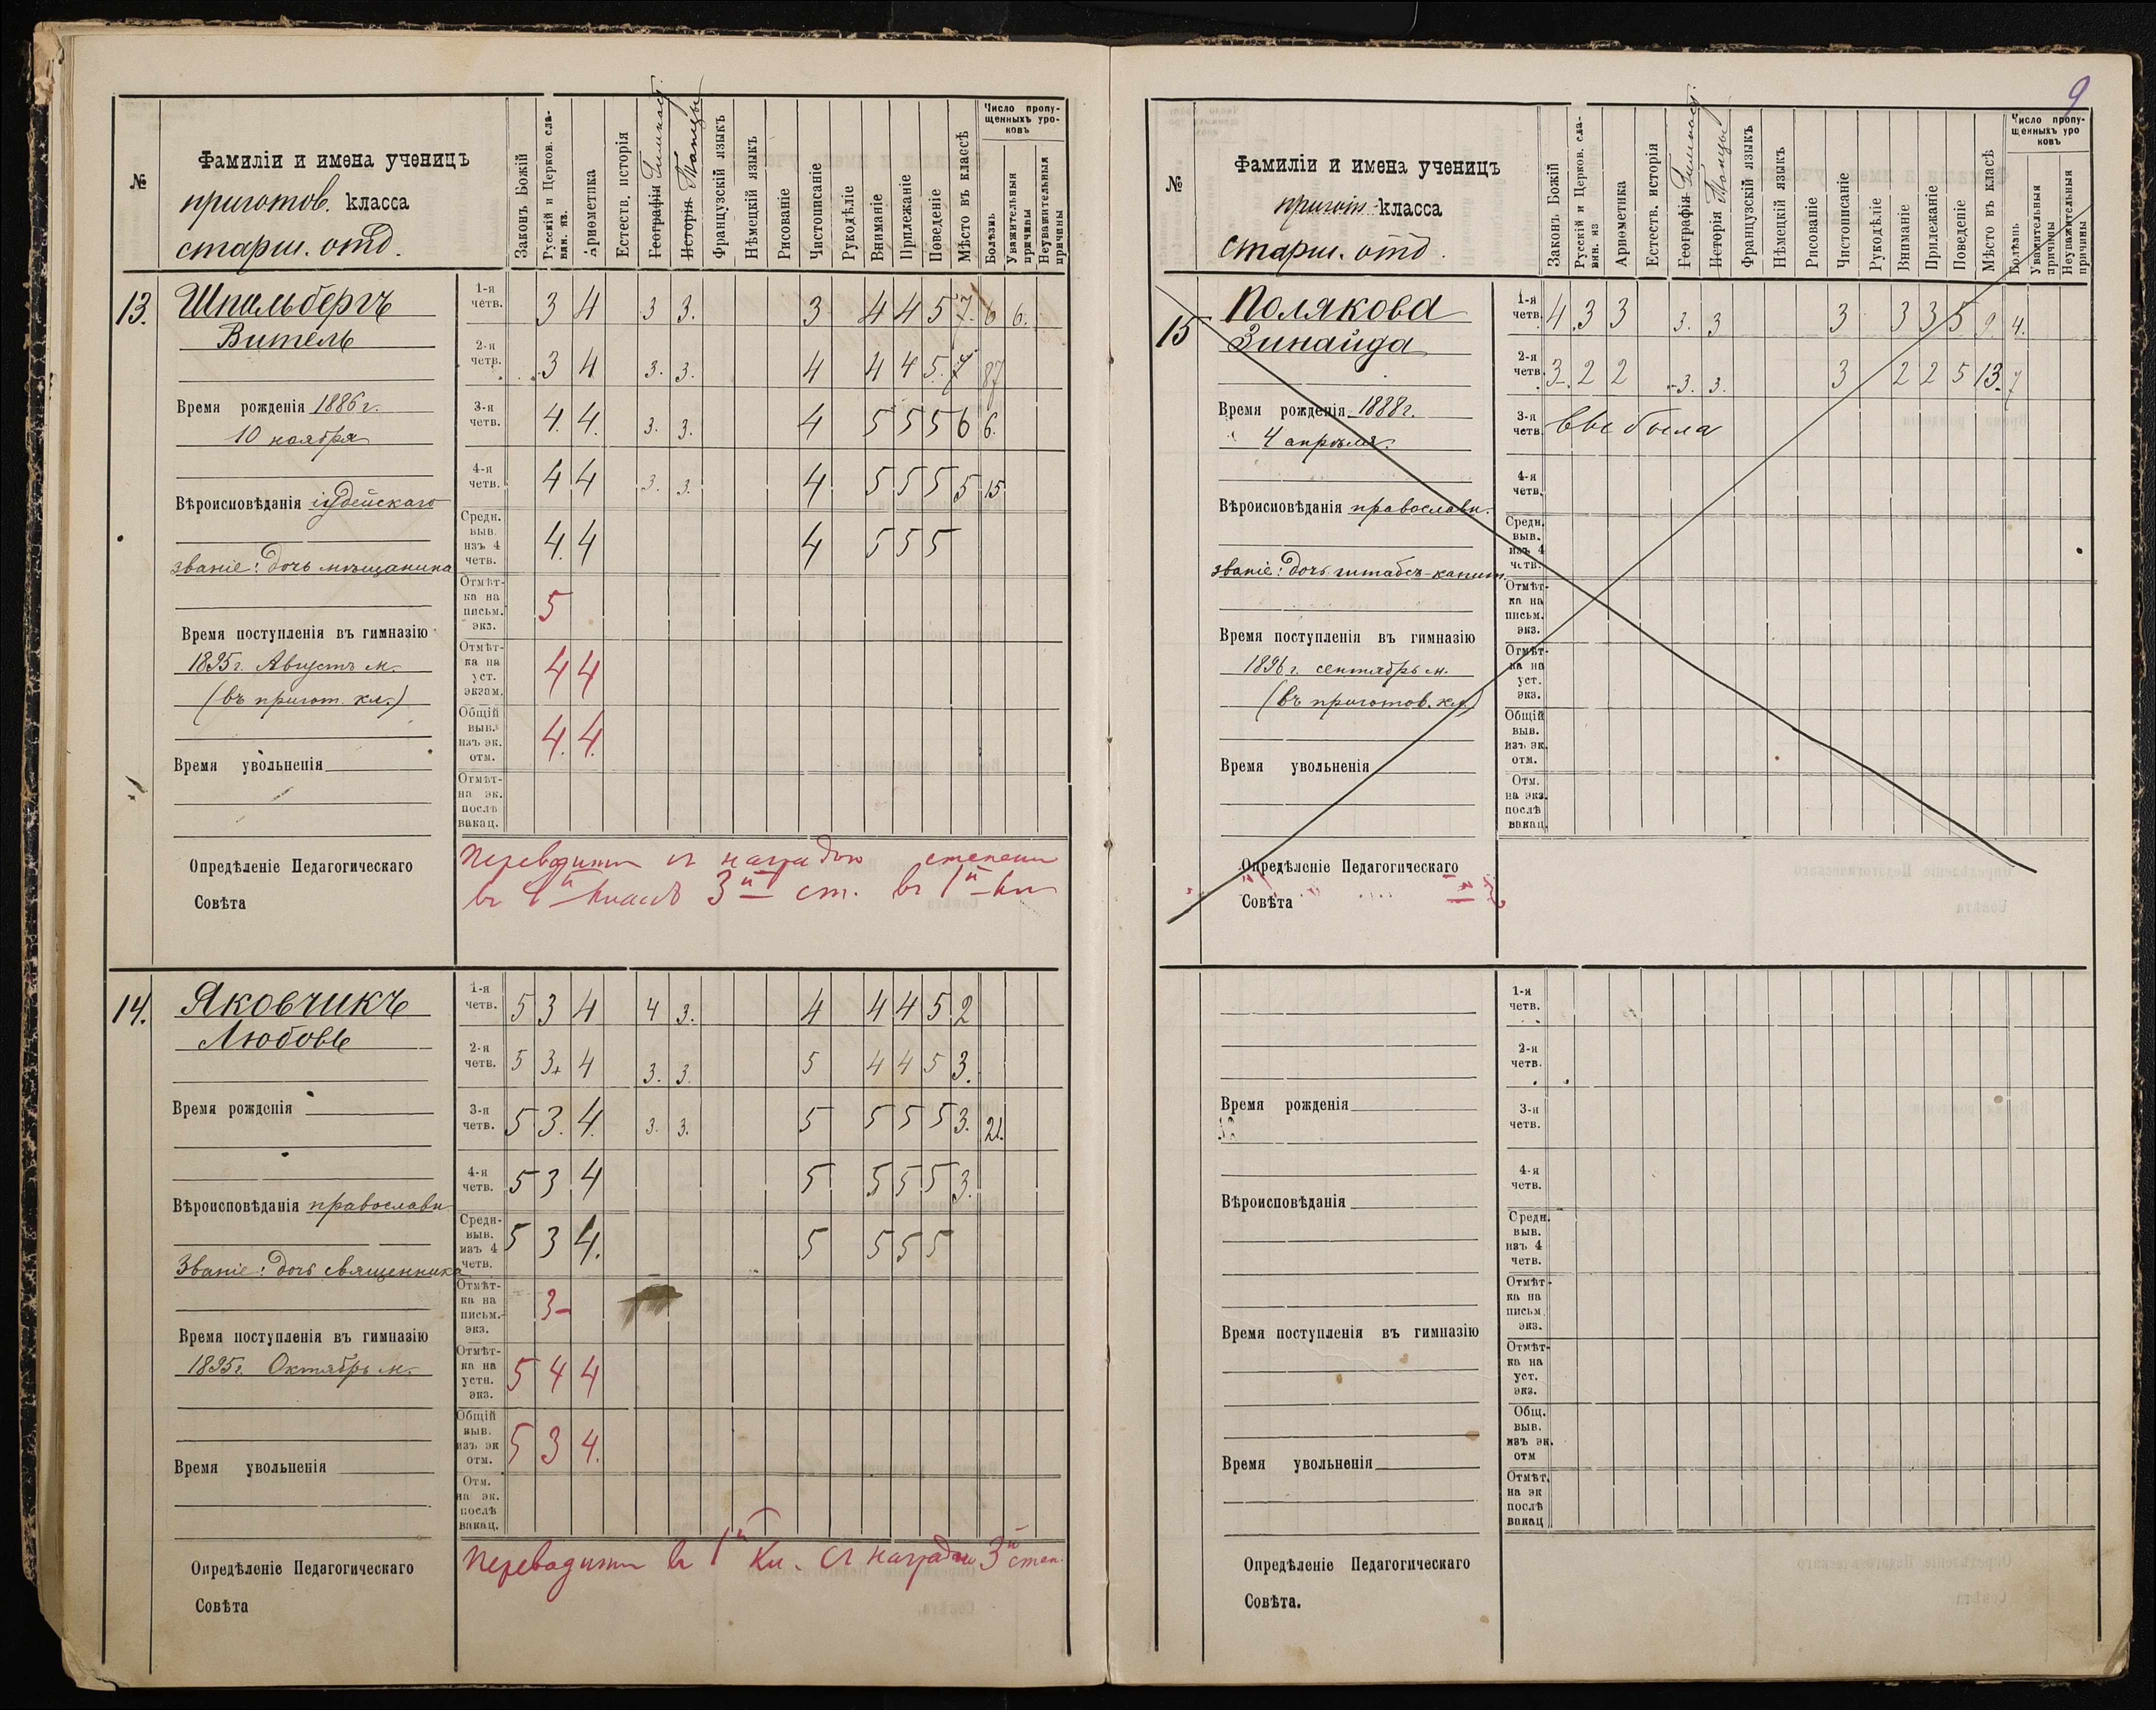 9
№
Фамиліи и имена ученицъ
приготов. класса
старш. отд.
Законъ Божій
Русскій и Церков. сла-
вян. яз.
Ариѳметика
Естеств. исторія
Географія Гимнаст.
Исторія Танцы
Французскій языкъ
Нѣмецкій языкъ
Рисованіе
Чистописаніе
Рукодѣліе
Вниманіе
Прилежаніе
Поведеніе
Мѣсто въ классѣ
Число пропу-
щенныхъ уро-
ковъ
Болѣзнь
Уважительныя
причины
Неуважительныя
причины
13.
Шпильбергъ
Витель
Время рожденія 1886 г.
10 ноября
Вѣроисповѣданія іудейскаго
званіе: дочь мѣщанина
Время поступленія въ гимназію
1895 г. Августъ м.
(въ пригот. кл.)
Время увольненія
1-я четв. 3 4 3 3. 3 4 4 5 7. 6 6.
2-я четв. 3 4 3. 3. 4 4 4 5. 7 87
3-я четв. 4. 4. 3. 3. 4 5 5 5 6 6.
4-я четв. 4 4 3. 3. 4 5 5 5 5 15
Средн. выв. изъ 4 четв. 4. 4 4 5 5 5
Отмѣт-ка на письм. экз. 5
Отмѣт-ка на уст. экзам. 4 4
Общій выв. изъ эк. отм. 4. 4.
Отмѣт-на эк. послѣ вакац.
Опредѣленіе Педагогическаго
Совѣта
14.
Яковчикъ
Любовь
Время рожденія
Вѣроисповѣданія православн.
Званіе: дочь священника
Время поступленія въ гимназію
1895 г. Октябрь м.
Время увольненія
1-я четв. 5 3 4 4 3. 4 4 4 5 2
2-я четв. 5 3+ 4 3. 3. 5 4 4 5 3.
3-я четв. 5 3. 4. 3. 3. 5 5 5 5 3. 21.
4-я четв. 5 3 4 5 5 5 5 3.
Средн-выв. изъ 4 четв. 5 3 4. 5 5 5 5
Отмѣт-ка на письм.-экз. 3-
Отмѣт-ка на устн. экз. 5 4 4
Общій выв. изъ эк отм. 5 3 4.
Отм. на эк. послѣ вакац.
Опредѣленіе Педагогическаго
Совѣта
Переводится въ 1й Кл. съ наградою 3й степ.
№
Фамиліи и имена ученицъ
пригот. класса
старш. отд.
Законъ Божій
Русскій и Церков. сла-
вян. яз
Ариѳметика
Естеств. исторія
Географія Гимнаст.
Исторія Танцы
Французскій языкъ
Нѣмецкій языкъ
Рисованіе
Чистописаніе
Рукодѣліе
Вниманіе
Прилежаніе
Поведеніе
Мѣсто въ класѣ
Число пропу-
щенныхъ уро
ковъ
Болѣзнь
Уважительныя
причины
Неуважительныя
причины
15
Полякова
Зинаида
Время рожденія 1888 г.
4 апрѣля.
Вѣроисповѣданія православн.
званіе: дочь штабсъ-капит.
Время поступленія въ гимназію
1896 г. сентябрь м.
(въ приготов. кл.)
Время увольненія
1-я четв. 4. 3 3 3. 3 3 3 3 5 9. 4.
2-я четв. 3. 2 2 3. 3. 3 2 2 5 13. 7
3-я четв. выбыла
4-я четв.
Средн. выв. изъ 4 четв.
Отмѣт-ка на письм. экз.
Отмѣт-ка на уст. экз.
Общій выв. изъ эк. отм.
Отм. на экз. послѣ вакац.
Опредѣленіе Педагогическаго
Совѣта
Время рожденія
Вѣроисповѣданія
Время поступленія въ гимназію
Время увольненія
1-я четв.
2-я четв.
3-я четв.
4-я четв.
Средн. выв. изъ 4 четв.
Отмѣт-ка на письм. экз.
Отмѣт-ка на уст. экз.
Общ. выв. изъ эк. отм
Отмѣт. на эк послѣ вакац
Опредѣленіе Педагогическаго
Совѣта.